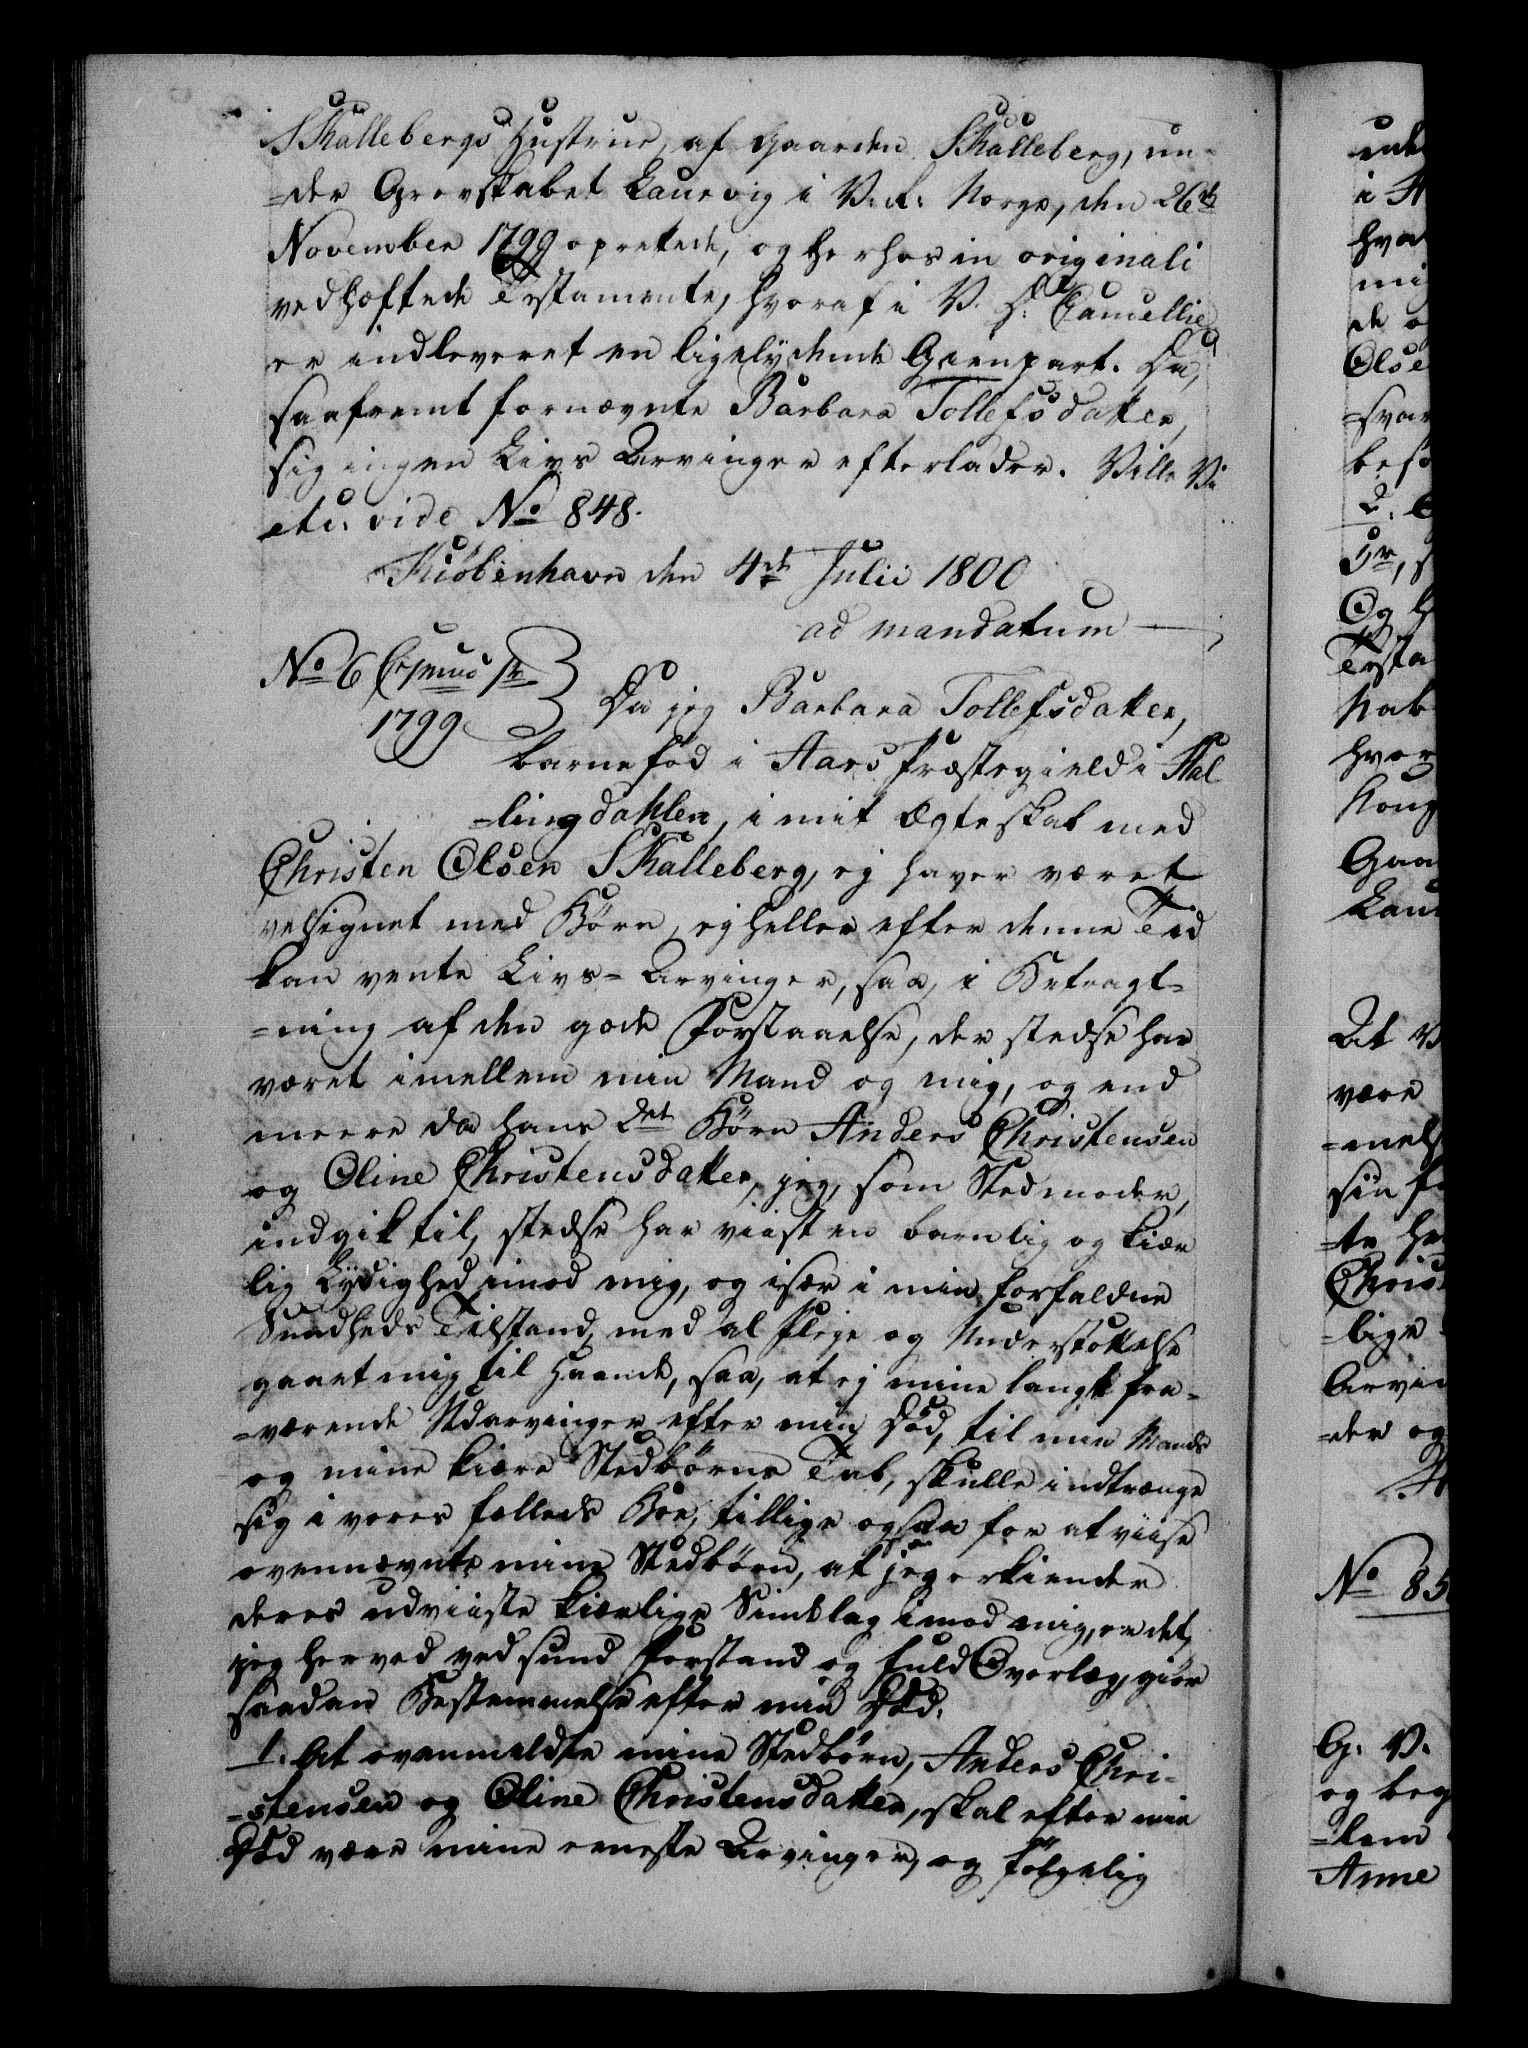 Skallebergs Hustrue, af Gaarden Skalleberg, un-
=der Grevskabet Laurvig i V. R. Norge, den 26de
November 1799 oprettede, og herhos in originali
vedhæftede Testamente, hvoraf i V. D. Cancellie
er indleveret en ligelydende Gienpart. Da,
saafremt fornævnte Barbara Tollefsdatter,
sig ingen Livs Arvinger efterlader. Ville Vi
etc: vide No 848.
Kiöbenhavn den 4de Julii 1800
ad mandatum
No 6
1799
Da jeg Barbara Tollefsdatter,
barnefød i Aars Præstegield i Hal
=lingdahlen, i mit Ægteskab med
Christen Olsen Skalleberg, ej haver været
velsignet med Börn, ej heller efter denne Tid
kan vente Livs=Arvinger, saa, i Betragt=
=ning af den gode Forstaaelse, der stedse har
været imellem min Mand og mig, og end
meere da hans 2de Börn Anders Christensen
og Oline Christensdatter, jeg, som Stedmoder,
indgik til, stedse har viist en barnlig og kiær
lig Lydighed imod mig, og især i min forfaldne
Sundheds Tilstand, med al Pleje og Understöttelse
gaaet mig til Haande, saa, at ej mine langt fra=
=værende Udarvinger efter min Död, til min Mands
og mine kiære Stedbörns Tab, skulle indtrænge
sig i vores fælleds Boe, tillige ogsaa for at viise
ovennævnte mine Stedbörn, at jeg erkiender
deres udviiste kiærlige Sindelag imod mig, er det,
jeg herved ved sund Forstand og fuld Overlæg, giör
saadan Bestemmelse efter min Död.
1. At ovenmeldte mine Stedbörn, Anders Chri=
=stensen og Oline Christensdatter, skal efter min
Död være mine eeneste Arvinger, og fölgelig
i
hva
mi
de
Olse
=svar
beso
2.
Og
Testa
hvor
Kong
Gaa
Lau
At V
være
=mels
sin
=te
Chris
=lige
Arvin
=der og
No 85
G. V.
og beg
=lem
Anne